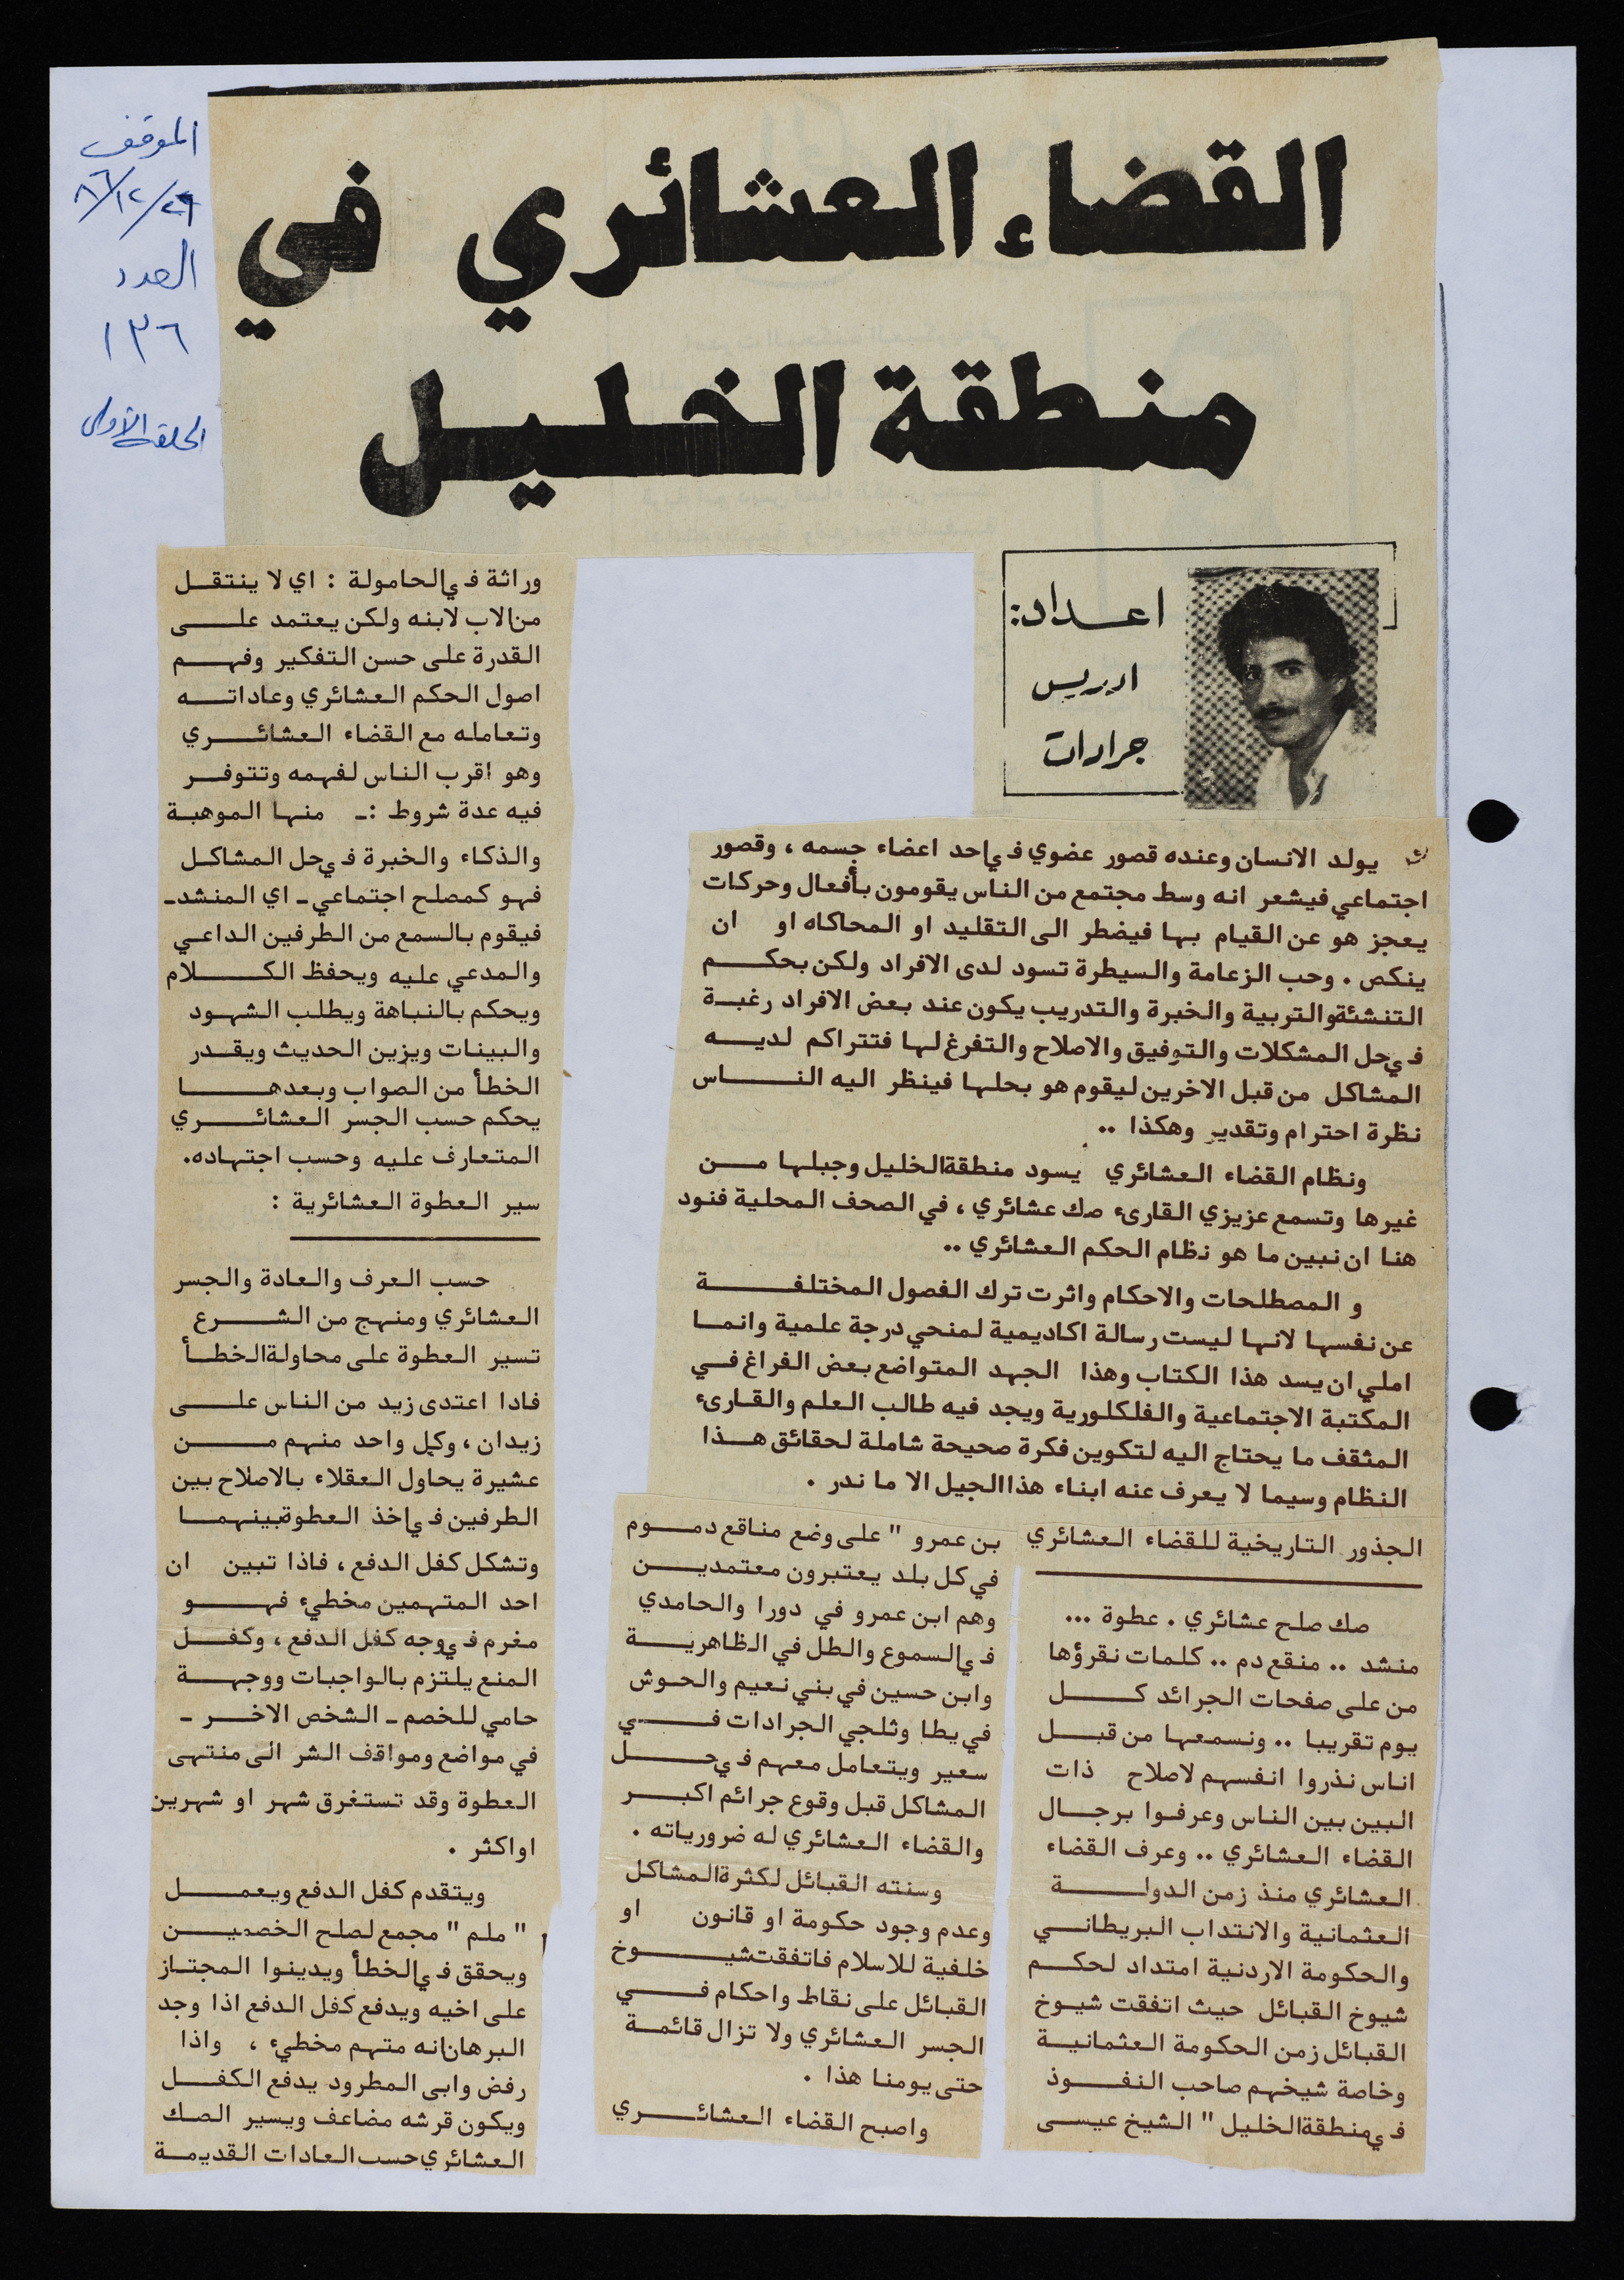 الموقف
٨٦/١٢/٢٩
العدد
١٣٦
الحلقة الاولى
القضاء العشائري في
منطقة الخليل
اعداد:
ادريس
جرادات
يولد الانسان وعنده قصور عضوي في احد اعضاء جسمه ، وقصور
اجتماعي فيشعر انه وسط مجتمع من الناس يقومون بأفعال وحركات
يعجز هو عن القيام بها فيضطر الى التقليد او المحاكاه او ان
ينكص . وحب الزعامة والسيطرة تسود لدى الافراد ولكن بحكم
التنشئة والتربية والخبرة والتدريب يكون عند بعض الافراد رغبة
في حل المشكلات والتوفيق والاصلاح والتفرغ لها فتتراكم لديه
المشاكل من قبل الاخرين ليقوم هو بحلها فينظر اليه الناس
نظرة احترام وتقدير وهكذا ..
ونظام القضاء العشائري يسود منطقة الخليل وجبلها من
غيرها وتسمع عزيزي القارىء صك عشائري ، في الصحف المحلية فنود
هنا ان نبين ما هو نظام الحكم العشائري ..
و المصطلحات والاحكام واثرت ترك الفصول المختلفة
عن نفسها لانها ليست رسالة اكاديمية لمنحي درجة علمية وانما
املي ان يسد هذا الكتاب وهذا الجهد المتواضع بعض الفراغ في
المكتبة الاجتماعية والفلكلورية ويجد فيه طالب العلم والقارىء
المثقف ما يحتاج اليه لتكوين فكرة صحيحة شاملة لحقائق هذا
النظام وسيما لا يعرف عنه ابناء هذا الجيل الا ما ندر .
الجذور التاريخية للقضاء العشائري
صك صلح عشائري . عطوة ...
منشد .. منقع دم .. كلمات نقرؤها
من على صفحات الجرائد كل
يوم تقريبا .. ونسمعها من قبل
اناس نذروا انفسهم لاصلاح ذات
البين بين الناس وعرفوا برجال
القضاء العشائري .. وعرف القضاء
العشائري منذ زمن الدولة
العثمانية والانتداب البريطاني
والحكومة الاردنية امتداد لحكم
شيوخ القبائل حيث اتفقت شيوخ
القبائل زمن الحكومة العثمانية
وخاصة شيخهم صاحب النفوذ
في منطقة الخليل " الشيخ عيسى
بن عمرو " على وضع مناقع دموم
في كل بلد يعتبرون معتمدين
وهم ابن عمرو في دورا والحامدي
في السموع والطل في الظاهرية
وابن حسين في بني نعيم والحوش
في يطا وثلجي الجرادات في
سعير ويتعامل معهم في حل
المشاكل قبل وقوع جرائم اكبر
والقضاء العشائري له ضرورياته .
وسنته القبائل لكثرة المشاكل
وعدم وجود حكومة او قانون او
خلفية للاسلام فاتفقت شيوخ
القبائل على نقاط واحكام في
الجسر العشائري ولا تزال قائمة
حتى يومنا هذا .
واصبح القضاء العشائري
وراثة في الحامولة : اي لا ينتقل
من الاب لابنه ولكن يعتمد على
القدرة على حسن التفكير وفهم
اصول الحكم العشائري وعاداته
وتعامله مع القضاء العشائري
وهو اقرب الناس لفهمه وتتوفر
فيه عدة شروط :ـ منها الموهبة
والذكاء والخبرة في حل المشاكل
فهو كمصلح اجتماعي ـ اي المنشد ـ
فيقوم بالسمع من الطرفين الداعي
والمدعي عليه ويحفظ الكلام
ويحكم بالنباهة ويطلب الشهود
والبينات ويزين الحديث ويقدر
الخطأ من الصواب وبعدها
يحكم حسب الجسر العشائري
المتعارف عليه وحسب اجتهاده.
سير العطوة العشائرية :
حسب العرف والعادة والجسر
العشائري ومنهج من الشرع
تسير العطوة على محاولة الخطأ
فادا اعتدى زيد من الناس على
زيدان ، وكل واحد منهم من
عشيرة يحاول العقلاء بالاصلاح بين
الطرفين في اخذ العطوة بينهما
وتشكل كفل الدفع ، فاذا تبين ان
احد المتهمين مخطيء فهو
مغرم في وجه كفل الدفع ، وكفل
المنع يلتزم بالواجبات ووجهة
حامي للخصم ـ الشخص الاخر ـ
في مواضع ومواقف الشر الى منتهى
العطوة وقد تستغرق شهر او شهرين
او اكثر .
ويتقدم كفل الدفع ويعمل
" ملم " مجمع لصلح الخصمين
ويحقق في الخطأ ويدينوا المجتاز
على اخيه ويدفع كفل الدفع اذا وجد
البرهان انه متهم مخطيء ، واذا
رفض وابى المطرود يدفع الكفل
ويكون قرشه مضاعف ويسير الصك
العشائري حسب العادات القديمة